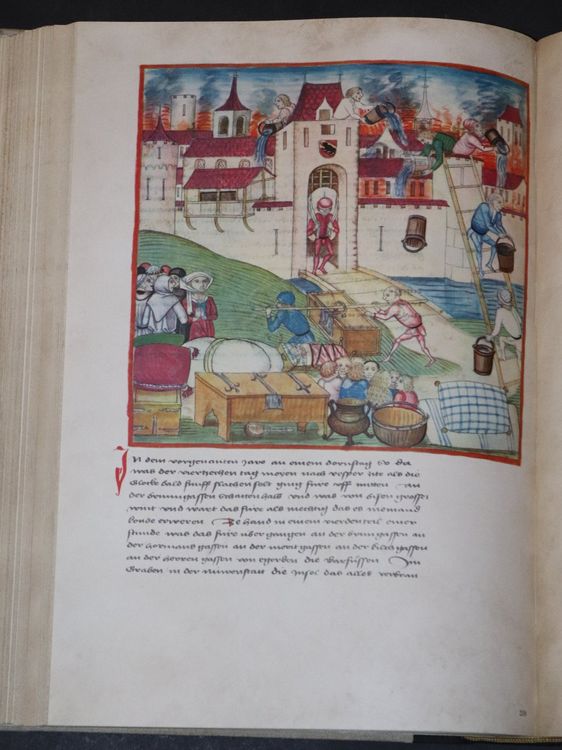 In dem vorgenanten jare an einem donstag so da
was der vierzechen tag meyen nach vesper zite als die
glock bald fünff slachen solt gieng füre uff mitten an
der brunngassen schattenhalb und was von bisen grosser
wint und wart das füre als mechtig das es niemand
konde erweren Ze hand in einem vierdenteil einer
stunde was das füre übergangen an der brungassen an
der hormans gassen an der merit gassen an der kilchgassen
an der herren gassen von egerden die barfüssen Im
graben in der nüwenstatt die Insel das alles verbran
28